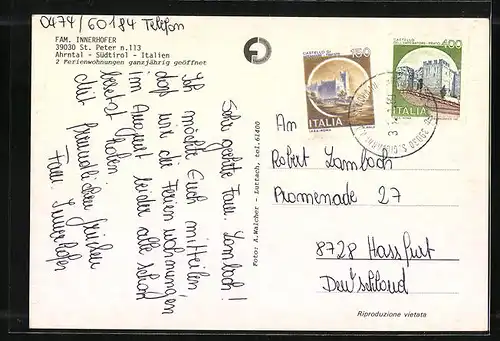 0474/60184 Telefon
FAM. INNERHOFER
39030 St. Peter n.113
Ahrntal - Südtirol - Italien
2 Ferienwohnungen ganzjährig geöffnet
Sehr geehrte Fam. Lambach!
Ich möchte Euch mitteilen
daß wir die Ferienwohnungen
im August leider alle schon
besetzt haben
Mit freundlichen Grüßen
Fam. Innerhofer
Foto: A.Walcher - Luttach, tel.61400
CASTELLO DI
150
ITALIA
400
ITALIA
39030 S.GIOVANNI
An
Robert Lambach
Promenade 27
8728 Hassfurt
Deutschland
Riproduzione vietata